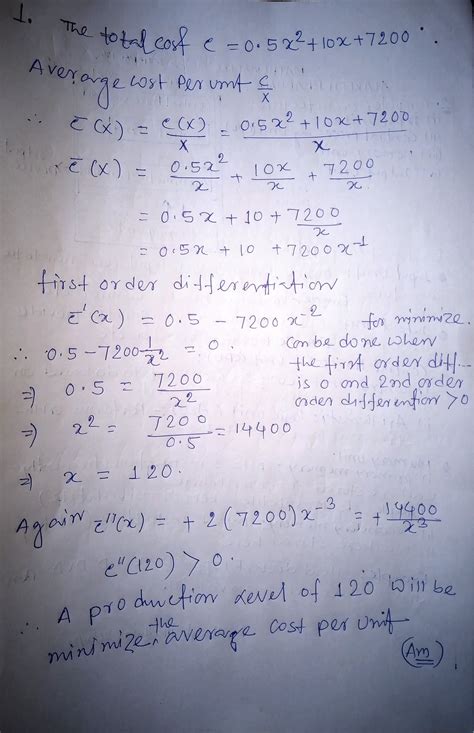 1. The total cost c = 0.5x²+10x+7200
Averarge cost per unit c/x
∴ c̄(x) = c(x)/x = (0.5x²+10x+7200)/x
c̄(x) = 0.5x²/x + 10x/x + 7200/x
= 0.5x + 10 + 7200/x
= 0.5x + 10 + 7200x⁻¹
first order differentiation
c̄'(x) = 0.5 - 7200x⁻² for minimize.
∴ 0.5 - 7200 1/x² = 0. Can be done when
the first order diff..
⇒ 0.5 = 7200/x² is 0 and 2nd order
order differention >0
⇒ x² = 7200/0.5 = 14400
⇒ x = 120.
Again c̄''(x) = + 2(7200)x⁻³ = + 14400/x³
c''(120) > 0.
∴ A production level of 120 will be
minimize the average cost per unit
(Ans)